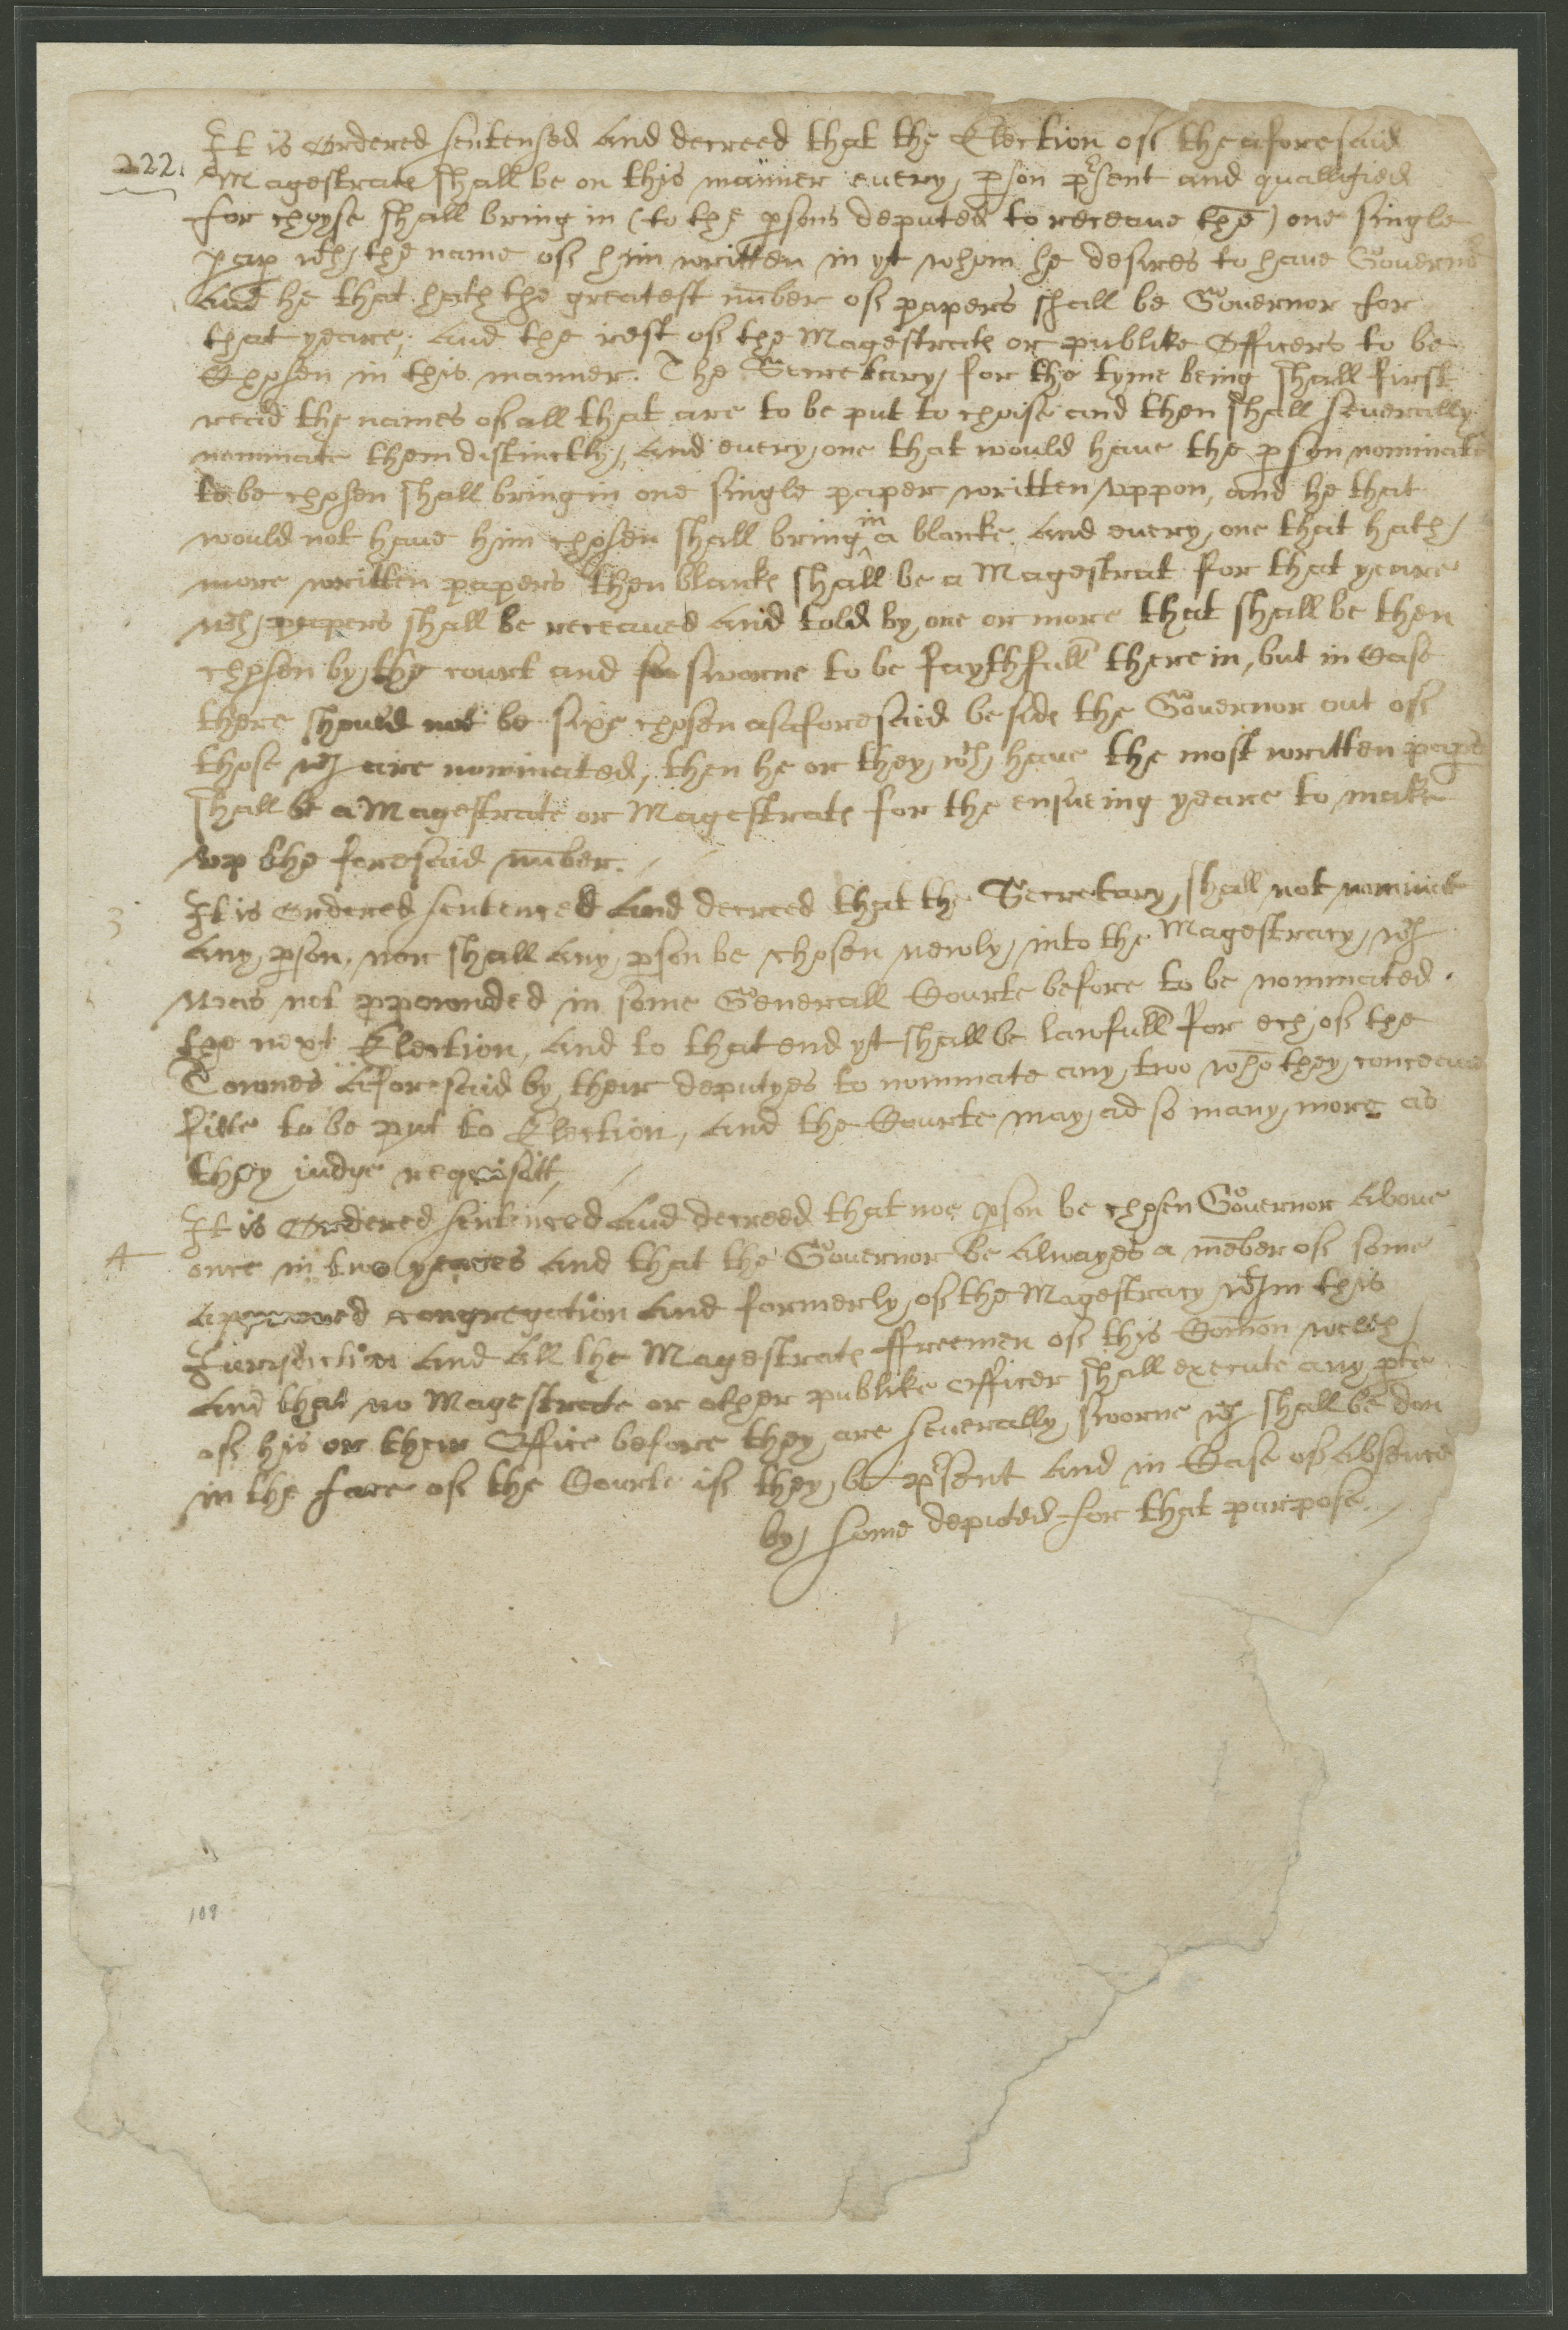 It is Ordered sentensed and decreed that the Election of the aforesaid
222. Magestrats shall be on this manner euery p̱son p̱rsent and quallified
for choyse shall bring in (to the p̱sons deputed to receaue thē) one single
pap̱ wth the name of him written in yt whom he desires to haue Gouernor
And he that hath the greatest nūber of papers shall be Gouernor for
that yeare; And the rest of the Magestrats or publike Officers to be
Chosen in this manner. The Secretary for the tyme being shall first
read the names of all that are to be put to choise and then shall seuerally
nominate them distinctly, And euery one that would haue the p̱son nominated
to be chosen shall bring in one single paper written vppon, and he that
would not haue him chosen shall bring in a blanke. And euery one that hath
more written papers then blanks shall be a Magestrat for that yeare
wch papers shall be receaued and told by one or more that shall be then
chosen by the court and sworne to be faythfull therein, but in Case
there should not be sixe chosen as aforesaid beside the Gouernor out of
those wch are nominated, then he or they wch haue the most written paprs
shall be a Magestrate or Magestrats for the ensueing yeare to make
vp the foresaid nūber.
3 It is Ordered sentenced and decreed that the Secretary shall not nominate
any p̱son, nor shall any p̱son be chosen newly into the Magestracy wch
was not p̱pownded in some Generall Courte before to be nominated
the next Election, And to that end yt shall be lawfull for ech of the
Townes aforesaid by their deputyes to nominate any two whō they conceaue
fitte to be put to Election, And the Courte may ad so many more as
they iudge requisitt,
It is Ordered sentenced and decreed that noe p̱son be chosen Gouernor aboue
4 once in two yeares and that the Gouernor be alwayes a mēber of some
approved congregation and formerly of the Magestracy wthin this
Jurisdiction and all the Magestrats ffreemen of this Comōn welth
and that no Magestrate or other publike officer shall execute any p̱te
of his or their Office before they are seuerally sworne wch shall be don
in the face of the Courte if they be p̱rsent and in Case of absence
by some deputed for that purpose.
109